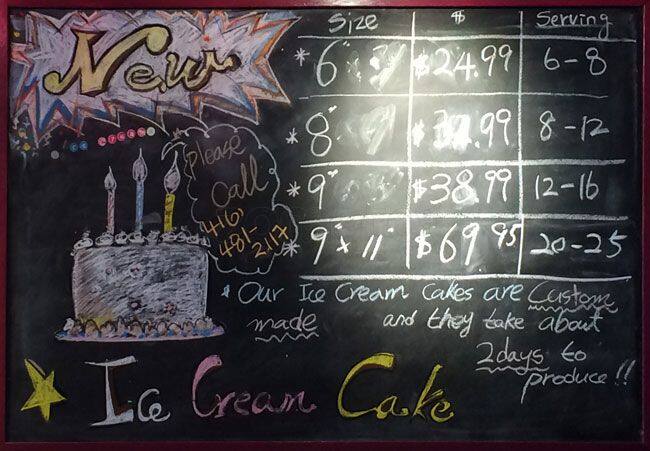 New
Size $ Serving
* 6" $24.99 6-8
* 8" .99 8-12
* 9" $38.99 12-16
* 9" x 11" $69.95 20-25
Please
Call
416)
481-
2117
* Our Ice Cream Cakes are Custom
made and they take about
2days to
produce!!
Ice Cream Cake